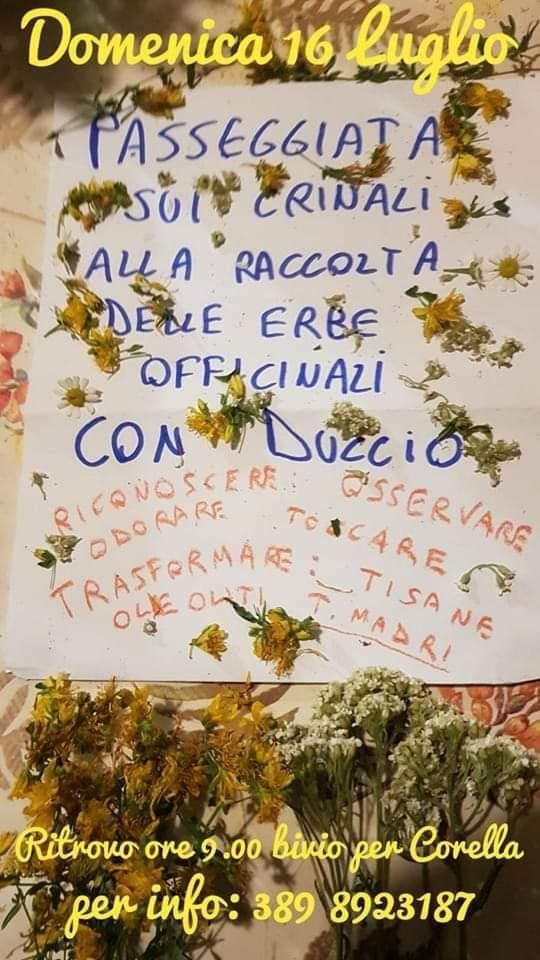 Domenica 16 Luglio
PASSEGGIATA
SUI CRINALI
ALLA RACCOLTA
DELLE ERBE
OFFICINALI
CON DUCCIO
RICONOSCERE: OSSERVARE
ODORARE TOCCARE
TRASFORMARE: TISANE
OLEOLITI T. MADRI
Ritrovo ore 9.00 bivio per Corella
per info: 389 8923187